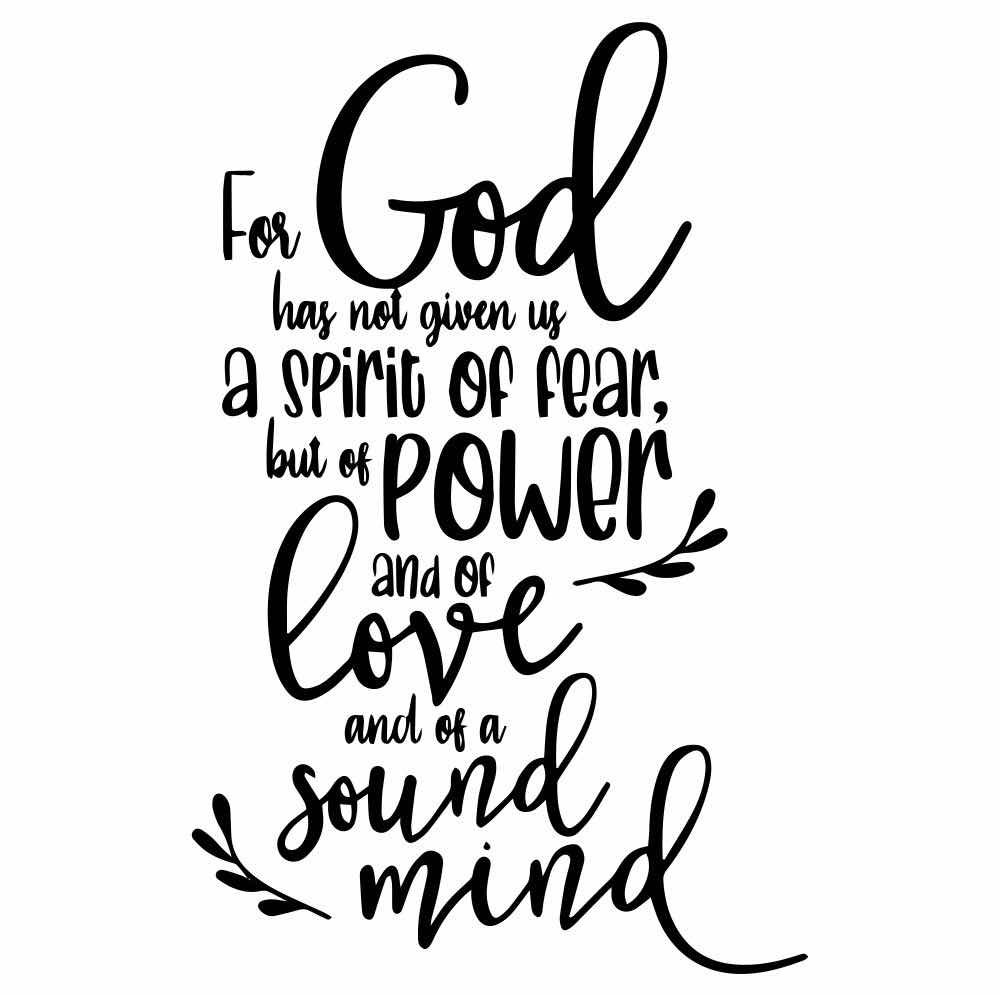 For God
has not given us
a spirit of fear,
but of power
and of
love
and of a
sound
mind